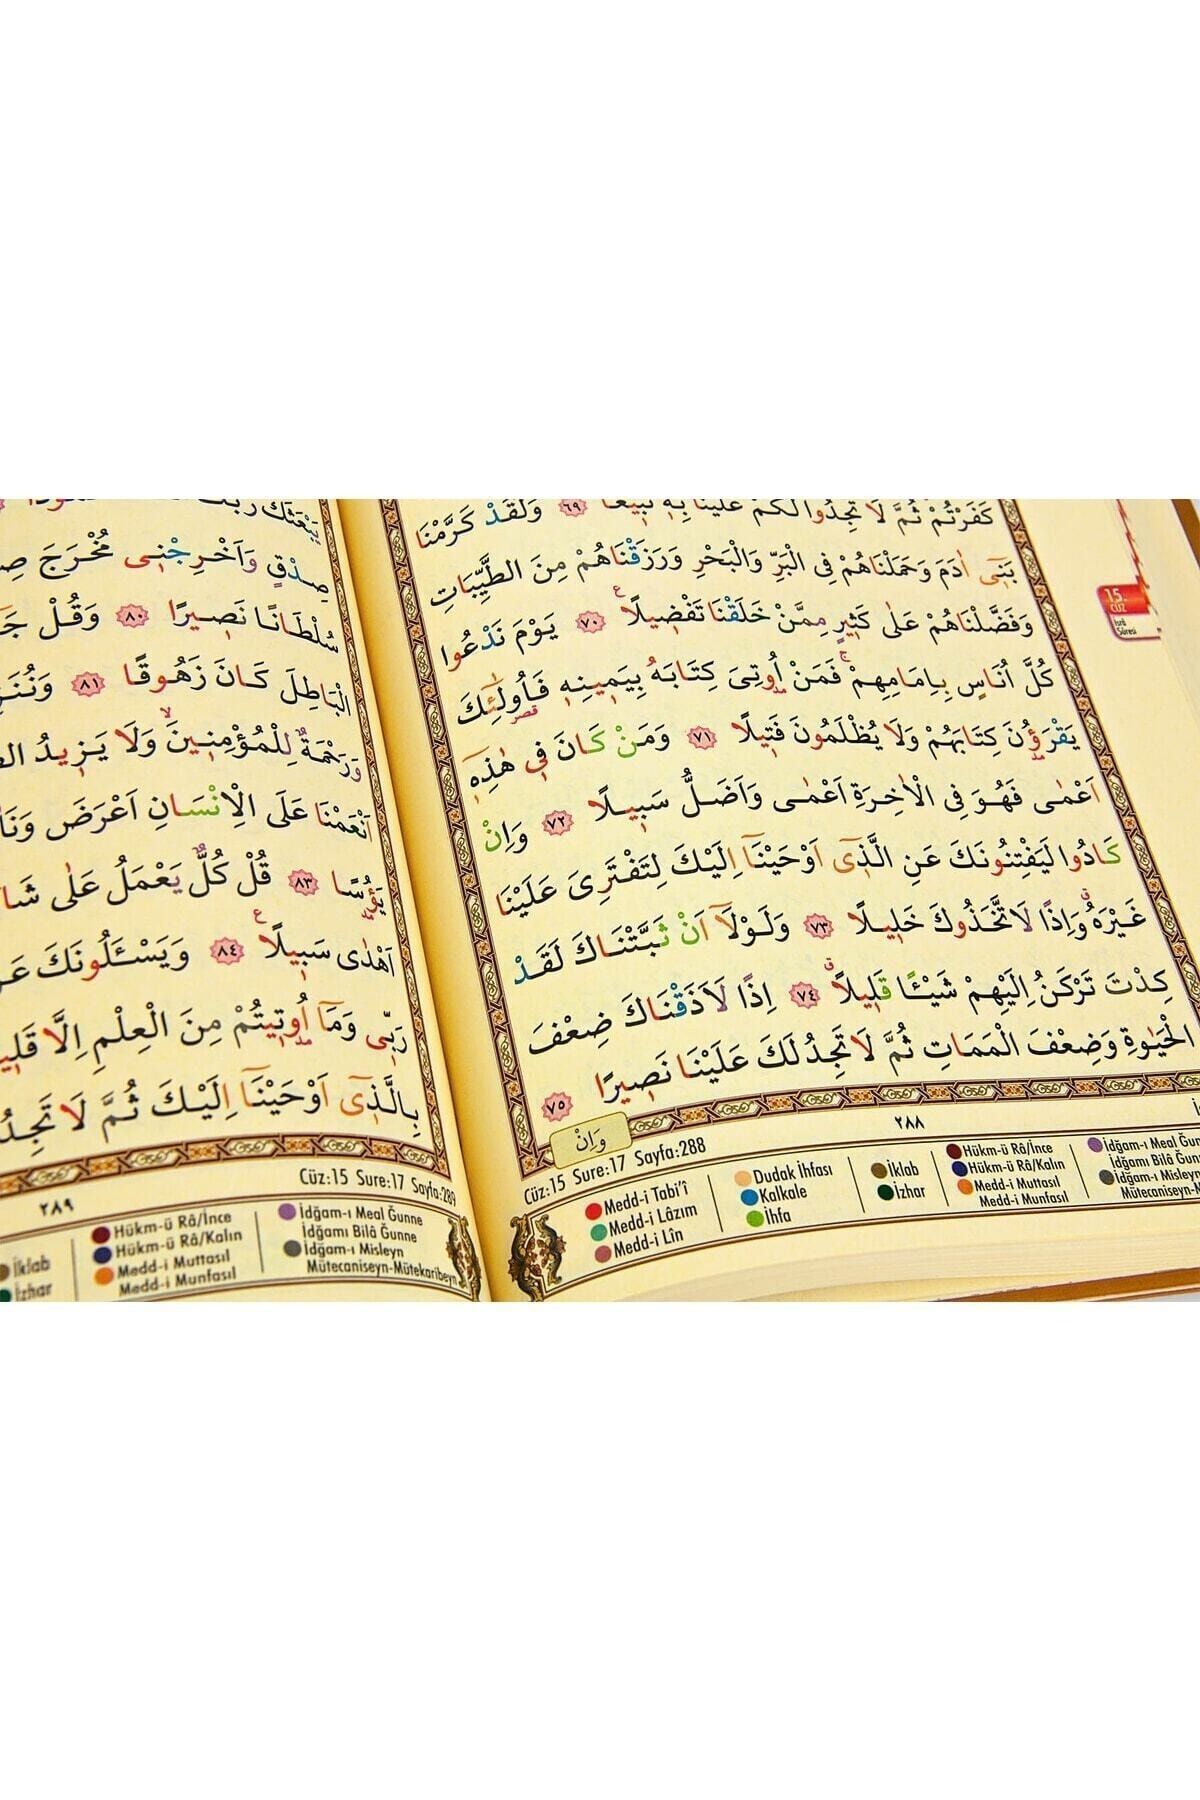 كَفَرْتُمْ ثُمَّ لَا تَجِدُوا لَكُمْ عَلَيْنَا بِهٖ تَبٖيعًا ﴿٦٩﴾ وَلَقَدْ كَرَّمْنَا
بَنٖٓى اٰدَمَ وَحَمَلْنَاهُمْ فِى الْبَرِّ وَالْبَحْرِ وَرَزَقْنَاهُمْ مِنَ الطَّيِّبَاتِ
وَفَضَّلْنَاهُمْ عَلٰى كَثٖيرٍ مِمَّنْ خَلَقْنَا تَفْضٖيلًا ۟ ﴿٧٠﴾ يَوْمَ نَدْعُوا
كُلَّ اُنَاسٍ بِاِمَامِهِمْۚ فَمَنْ اُوتِىَ كِتَابَهُ بِيَمٖينِهٖ فَاُو۬لٰٓئِكَ
يَقْرَؤُ۫نَ كِتَابَهُمْ وَلَا يُظْلَمُونَ فَتٖيلًا ﴿٧١﴾ وَمَنْ كَانَ فٖى هٰذِهٖٓ
اَعْمٰى فَهُوَ فِى الْاٰخِرَةِ اَعْمٰى وَاَضَلُّ سَبٖيلًا ﴿٧٢﴾ وَاِنْ
كَادُوا لَيَفْتِنُونَكَ عَنِ الَّذٖٓى اَوْحَيْنَٓا اِلَيْكَ لِتَفْتَرِىَ عَلَيْنَا
غَيْرَهُۗ وَاِذًا لَاتَّخَذُوكَ خَلٖيلًا ﴿٧٣﴾ وَلَوْلَٓا اَنْ ثَبَّتْنَاكَ لَقَدْ
كِدْتَ تَرْكَنُ اِلَيْهِمْ شَيْـًٔا قَلٖيلًاۗ ﴿٧٤﴾ اِذًا لَاَذَقْنَاكَ ضِعْفَ
الْحَيٰوةِ وَضِعْفَ الْمَمَاتِ ثُمَّ لَا تَجِدُ لَكَ عَلَيْنَا نَصٖيرًا ﴿٧٥﴾
وَاِنْ
٢٨٨
Cüz:15 Sure:17 Sayfa:288
Medd-i Tabi'î
Medd-i Lâzım
Medd-i Lîn
Dudak İhfası
Kalkale
İhfa
İklab
İzhar
Hükm-ü Râ/İnce
Hükm-ü Râ/Kalın
Medd-i Muttasıl
Medd-i Munfasıl
İdğam-ı Meal Ğunne
İdğamı Bilâ Ğunne
İdğam-ı Misleyn
15.
CÜZ
İsrâ
Sûresi
يَبْعَثَكَ رَبُّكَ
صِدْقٍ وَاَخْرِجْنٖى مُخْرَجَ
سُلْطَانًا نَصٖيرًا ﴿٨٠﴾ وَقُلْ
الْبَاطِلَ كَانَ زَهُوقًا ﴿٨١﴾
وَرَحْمَةٌ لِلْمُؤْمِنٖينَۙ وَلَا يَزٖيدُ
اَنْعَمْنَا عَلَى الْاِنْسَانِ اَعْرَضَ
يَؤُ۫سًا ﴿٨٣﴾ قُلْ كُلٌّ يَعْمَلُ عَلٰى
اَهْدٰى سَبٖيلًا ۟ ﴿٨٤﴾ وَيَسْـَٔلُونَكَ
رَبّٖى وَمَٓا اُو۫تٖيتُمْ مِنَ الْعِلْمِ اِلَّا
بِالَّذٖٓى اَوْحَيْنَٓا اِلَيْكَ ثُمَّ لَا تَجِدُ
Cüz:15 Sure:17 Sayfa:289
٢٨٩
İklab
İzhar
Hükm-ü Râ/İnce
Hükm-ü Râ/Kalın
Medd-i Muttasıl
Medd-i Munfasıl
İdğam-ı Meal Ğunne
İdğamı Bilâ Ğunne
İdğam-ı Misleyn
Mütecaniseyn-Mütekaribeyn